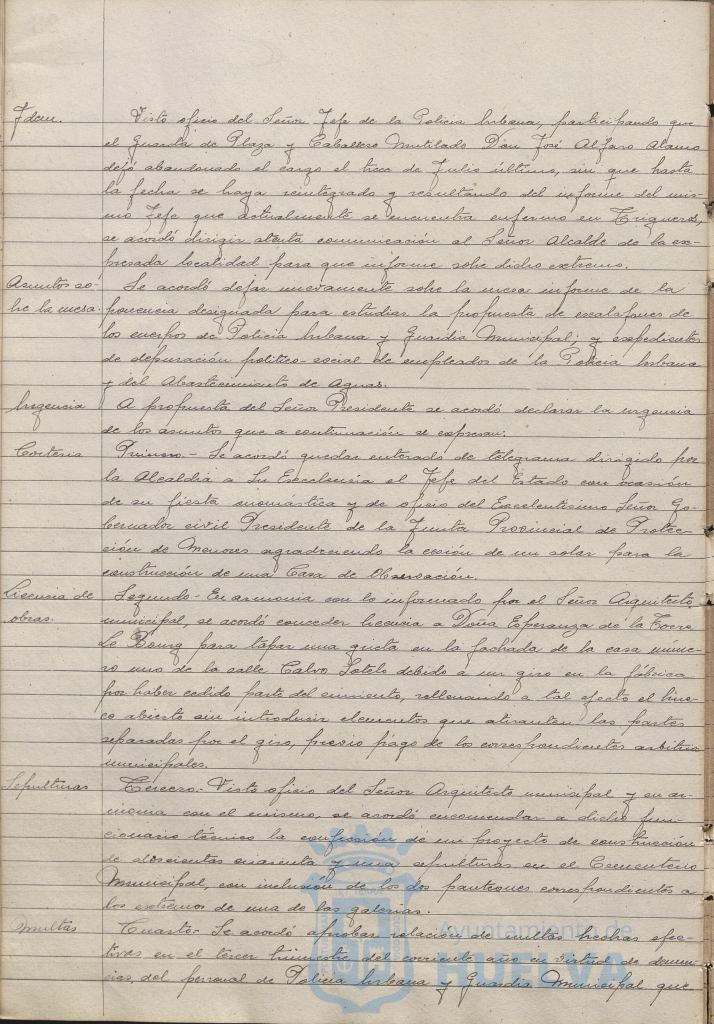 Idem. Visto oficio del Señor Jefe de la Policía Urbana, participando que
el Guarda de Plaza y Caballero Mutilado Don José Alfaro Alamo
dejó abandonado el cargo el trece de Julio último, sin que hasta
la fecha se haya reintegrado y resultando del informe del mis-
mo Jefe que actualmente se encuentra enfermo en Trigueros,
se acordó dirigir atenta comunicación al Señor Alcalde de la ex-
presada localidad para que informe sobre dicho extremo.
Asuntos so- Se acordó dejar nuevamente sobre la mesa informe de la
bre la mesa. ponencia designada para estudiar la propuesta de escalafones de
los cuerpos de Policía Urbana y Guardia Municipal; y expedientes
de depuración político-social de empleados de la Policía Urbana
y del Abastecimiento de Aguas.
Urgencia A propuesta del Señor Presidente se acordó declarar la urgencia
de los asuntos que a continuación se expresan:
Cortesía Primero.- Se acordó quedar enterado de telegrama dirigido por
la Alcaldía a Su Excelencia el Jefe del Estado con ocasión
de su fiesta onomástica y de oficio del Excelentísimo Señor Go-
bernador civil Presidente de la Junta Provincial de Protec-
ción de Menores agradeciendo la cesión de un solar para la
construcción de una Casa de Observación.
Licencia de Segundo.- En armonía con lo informado por el Señor Arquitecto
obras. municipal, se acordó conceder licencia a Doña Esperanza de la Torre
Le Bourg para tapar una grieta en la fachada de la casa núme-
ro uno de la calle Calvo Sotelo debido a un giro en la fábrica
por haber cedido parte del cimiento, rellenando a tal efecto el hue-
co abierto sin introducir elementos que atiranten las partes
separadas por el giro, previo pago de los correspondientes arbitrios
municipales.
Sepulturas Tercero.- Visto oficio del Señor Arquitecto municipal y en ar-
monía con el mismo, se acordó encomendar a dicho fun-
cionario técnico la confección de un proyecto de construcción
de doscientas cuarenta y una sepulturas en el Cementerio
Municipal, con inclusión de los dos panteones correspondientes a
los extremos de una de las galerías.
Multas Cuarto.- Se acordó aprobar relación de multas hechas efec-
tivas en el tercer trimestre del corriente año en virtud de denun-
cias, del personal de Policía Urbana y Guardia Municipal que
Ayuntamiento de
HUELVA